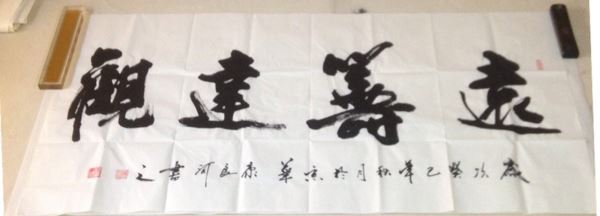 遠籌達觀
歲次癸巳年秋月於京華康良河書之